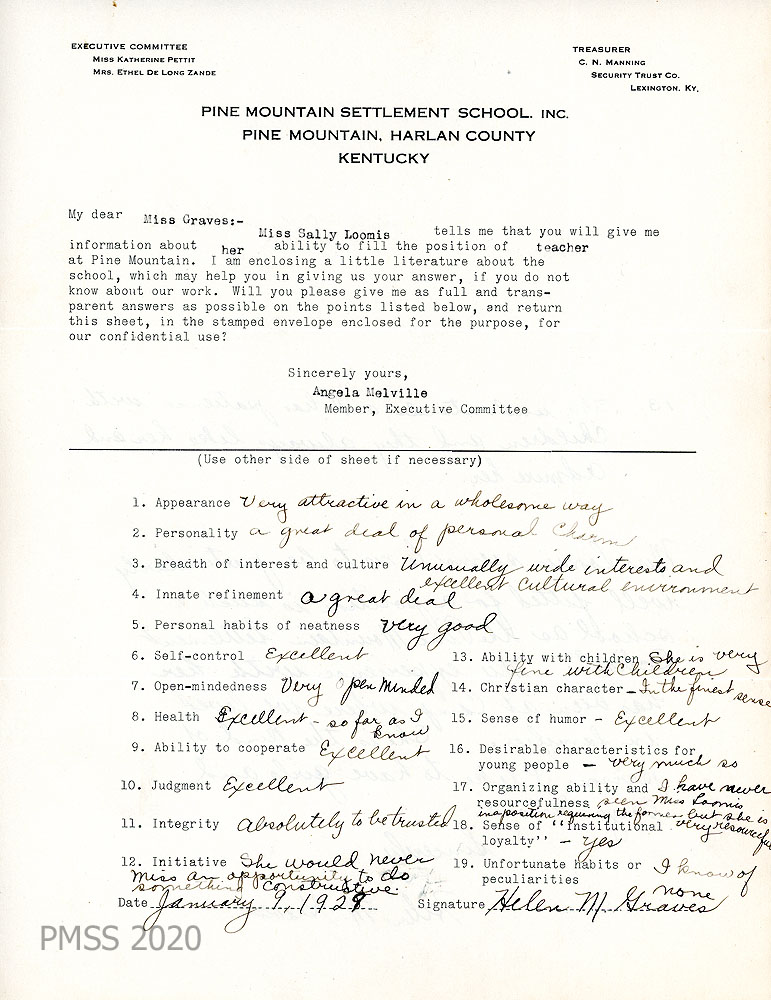 EXECUTIVE COMMITTEE
MISS KATHERINE PETTIT
MRS. ETHEL DE LONG ZANDE
TREASURER
C. N. MANNING
SECURITY TRUST CO.
LEXINGTON. KY.
PINE MOUNTAIN SETTLEMENT SCHOOL. INC.
PINE MOUNTAIN, HARLAN COUNTY
KENTUCKY
My dear Miss Graves:-
Miss Sally Loomis tells me that you will give me
information about her ability to fill the position of teacher
at Pine Mountain. I am enclosing a little literature about the
school, which may help you in giving us your answer, if you do not
know about our work. Will you please give me as full and trans-
parent answers as possible on the points listed below, and return
this sheet, in the stamped envelope enclosed for the purpose, for
our confidential use?
Sincerely yours,
Angela Melville
Member, Executive Committee
(Use other side of sheet if necessary)
1. Appearance Very attractive in a wholesome way
2. Personality a great deal of personal charm
3. Breadth of interest and culture Unusually wide interests and
excellent cultural environment
4. Innate refinement a great deal
5. Personal habits of neatness very good
6. Self-control Excellent
7. Open-mindedness Very Open Minded
8. Health Excellent - so far as I
know
9. Ability to cooperate Excellent
10. Judgment Excellent
11. Integrity Absolutely to be trusted
12. Initiative She would never
miss an opportunity to do
something constructive.
13. Ability with children She is very
fine with children
14. Christian character - In the finest sense
15. Sense of humor - Excellent
16. Desirable characteristics for
young people - very much so
17. Organizing ability and I have never
resourcefulness seen Miss Loomis
in a position requiring the former but she is
very resourceful
18. Sense of "institutional
loyalty" - yes
19. Unfortunate habits or I know of
peculiarities none
Date January 9, 1928
Signature Helen M Graves
PMSS 2020